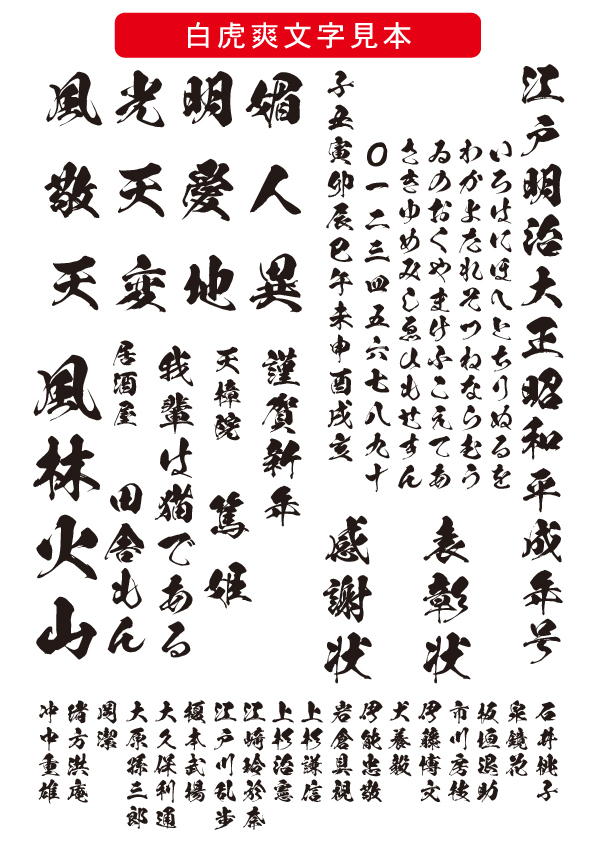 白虎爽文字見本
江戸明治大正昭和平成年号
いろはにほへとちりぬるを
わかよたれそつねならむう
ゐのおくやまけふこえてあ
さきゆめみしゑひもせすん
〇一二三四五六七八九十
子丑寅卯辰巳午未申酉戌亥
表彰状
感謝状
媚人異
明愛地
光天変
風敬天
謹賀新年
天樟院 篤姫
我輩は猫である
居酒屋 田舎もん
風林火山
石井桃子
泉鏡花
板垣退助
市川房枝
伊藤博文
犬養毅
伊能忠敬
岩倉具視
上杉謙信
上杉治憲
江崎玲於奈
江戸川乱歩
榎本武揚
大久保利通
大原孫三郎
岡潔
緒方洪庵
沖中重雄